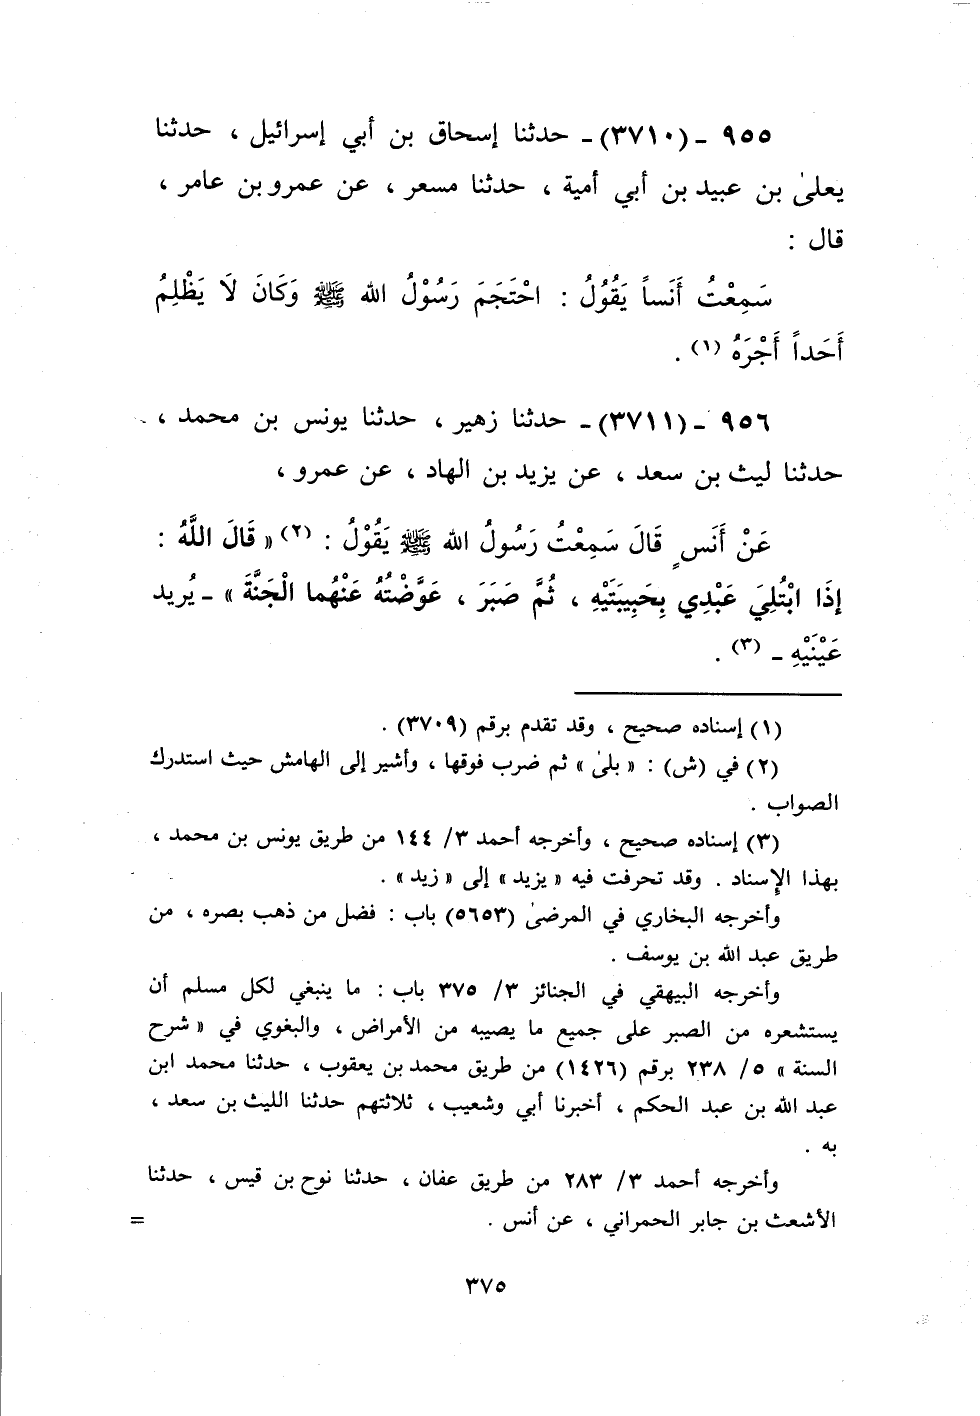 ٩٥٥ - (٣٧١٠) - حدثنا إسحاق بن أبي إسرائيل ، حدثنا
يعلىٰ بن عبيد بن أبي أمية ، حدثنا مسعر ، عن عمرو بن عامر ،
قال :
سَمِعْتُ أَنَساً يَقُوْلُ : احْتَجَمَ رَسُوْلُ الله ﷺ وَكَانَ لَا يَظْلِمُ
أَحَداً أَجْرَهُ (١) .
٩٥٦ - (٣٧١١) - حدثنا زهير ، حدثنا يونس بن محمد ،
حدثنا ليث بن سعد ، عن يزيد بن الهاد ، عن عمرو ،
عَنْ أَنَسٍ قَالَ سَمِعْتُ رَسُولُ الله ﷺ يَقُوْلُ : (٢) « قَالَ اللَّهُ :
إِذَا ابْتُلِيَ عَبْدِي بِحَبِيبَتَيْهِ ، ثُمَّ صَبَرَ ، عَوَّضْتُهُ عَنْهُما الْجَنَّةَ » - يُريد
عَيْنَيْهِ - (٣) .
(١) إسناده صحيح ، وقد تقدم برقم (٣٧٠٩) .
(٢) في (ش) : « بلىٰ » ثم ضرب فوقها ، وأشير إلى الهامش حيث استدرك
الصواب .
(٣) إسناده صحيح ، وأخرجه أحمد ٣/ ١٤٤ من طريق يونس بن محمد ،
بهذا الإسناد . وقد تحرفت فيه « يزيد » إلى « زيد » .
وأخرجه البخاري في المرضىٰ (٥٦٥٣) باب : فضل من ذهب بصره ، من
طريق عبد الله بن يوسف .
وأخرجه البيهقي في الجنائز ٣/ ٣٧٥ باب : ما ينبغي لكل مسلم أن
يستشعره من الصبر على جميع ما يصيبه من الأمراض ، والبغوي في « شرح
السنة » ٥/ ٢٣٨ برقم (١٤٢٦) من طريق محمد بن يعقوب ، حدثنا محمد ابن
عبد الله بن عبد الحكم ، أخبرنا أبي وشعيب ، ثلاثتهم حدثنا الليث بن سعد ،
به .
وأخرجه أحمد ٣/ ٢٨٣ من طريق عفان ، حدثنا نوح بن قيس ، حدثنا
الأشعث بن جابر الحمراني ، عن أنس . =
٣٧٥